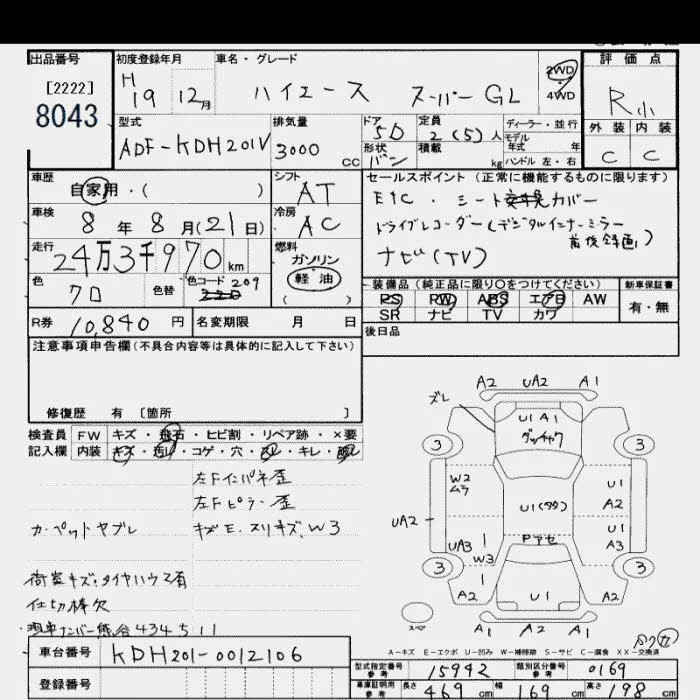 出品番号 初度登録年月 車名・グレード 評価点
[2222]
8043
H19 12月 ハイエース スーパーGL 2WD 4WD R小
外装 内装
C C
型式 排気量 ドア 5D 定員 2(5)人 ディーラー・並行
ADF-KDH201V 3000 CC 形状 バン 積載 kg モデル年式 年式 ハンドル 左・右
車歴 自家用・( ) シフト AT セールスポイント(正常に機能するものに限ります)
車検 8年8月(21日) 冷房 AC ETC・シート カバー
ドライブレコーダー(デジタルインナーミラー
前後録画)
走行 24万3千970km 燃料 ガソリン 軽油 ( ) ナビ(TV)
色 クロ 色替 色コード 209
装備品(純正品に限り〇をつけてください) 新車保証書
PS PW ABS エアB AW 有・無
SR ナビ TV カワ
R券 10,840円 名変期限 月 日 後日品
注意事項申告欄(不具合内容等は具体的に記入して下さい)
修復歴 有 [箇所 ]
検査員 FW キズ・飛石・ヒビ割・リペア跡・×要
記入欄 内装 キズ・汚れ・コゲ・穴・スレ・キレ・
左Fインパネ歪
左Fピラー歪
カーペットヤブレ キズE.スリキズ.W3
荷室キズ・タイヤハウス有
仕切棒欠
現車ナンバー熊谷434 511
車台番号 KDH201-0012106
登録番号
A2 UA2 A1
ズレ
U1 A1
グッチャク
3 3
W2
ムラ
U1
A2
U1(タタ)
UA2
U1
A3
UA3
W3
3 3
A2 U1 A2
スペア
A1 A2 A1
A-キズ E-エクボ U-凹み W-補修跡 S-サビ C-腐食 XX-交換済
型式指定番号 参考 15942 類別区分番号 参考 0169
車庫証明用 参考 長さ 469cm 幅 169cm 高さ 198cm